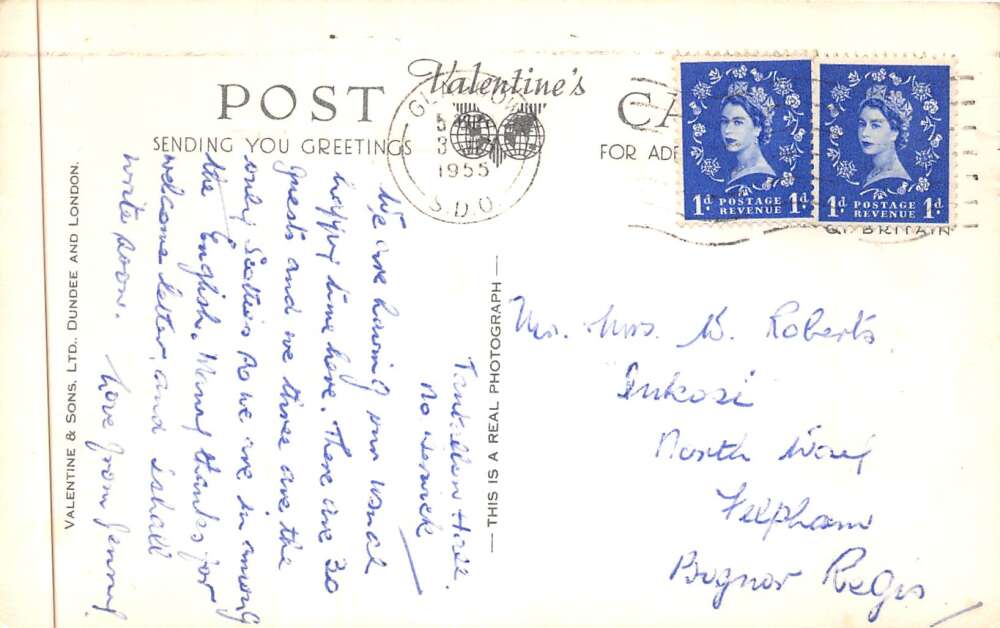 POST CA
Valentine's
SENDING YOU GREETINGS
FOR ADD
5
3
1955
S.D.O.
1d POSTAGE REVENUE 1d
1d POSTAGE REVENUE 1d
GT BRITAIN
VALENTINE & SONS, LTD., DUNDEE AND LONDON.
— THIS IS A REAL PHOTOGRAPH —
Keswick
We are having our usual
happy time here. There are 30
guests and we three are the
only Scotties so we are in among
the English. Many thanks for
welcome letter, and I shall
write soon.
Love from Jenny
Mr. Mrs. D. Roberts
Inkosi
North Way
Felpham
Bognor Regis